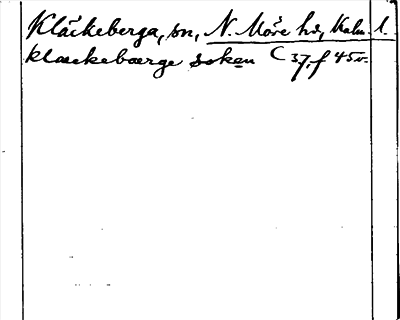 Kläckeberga, sn, N. Möre hd, Kalm. l.
klæckebærge soken C 37, f 45v.